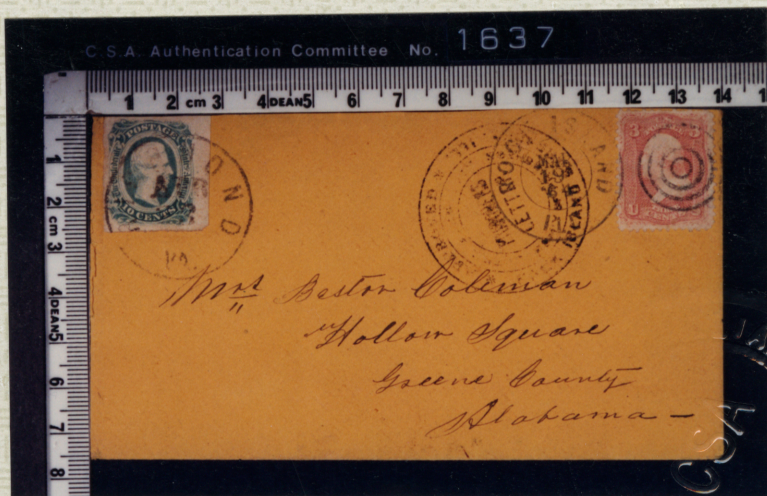 C.S.A. Authentication Committee No. 1637
1 2 cm 3 4 DEAN 5 6 7 8 9 10 11 12 13 14
1 2 cm 3 4 DEAN 5 6 7 8
POSTAGE
10 CENTS
OND
VA.
ISLAND
ISLAND
3 3
U
Mrs Bestor Coleman
Hollow Square
Greene County
Alabama –
CSA